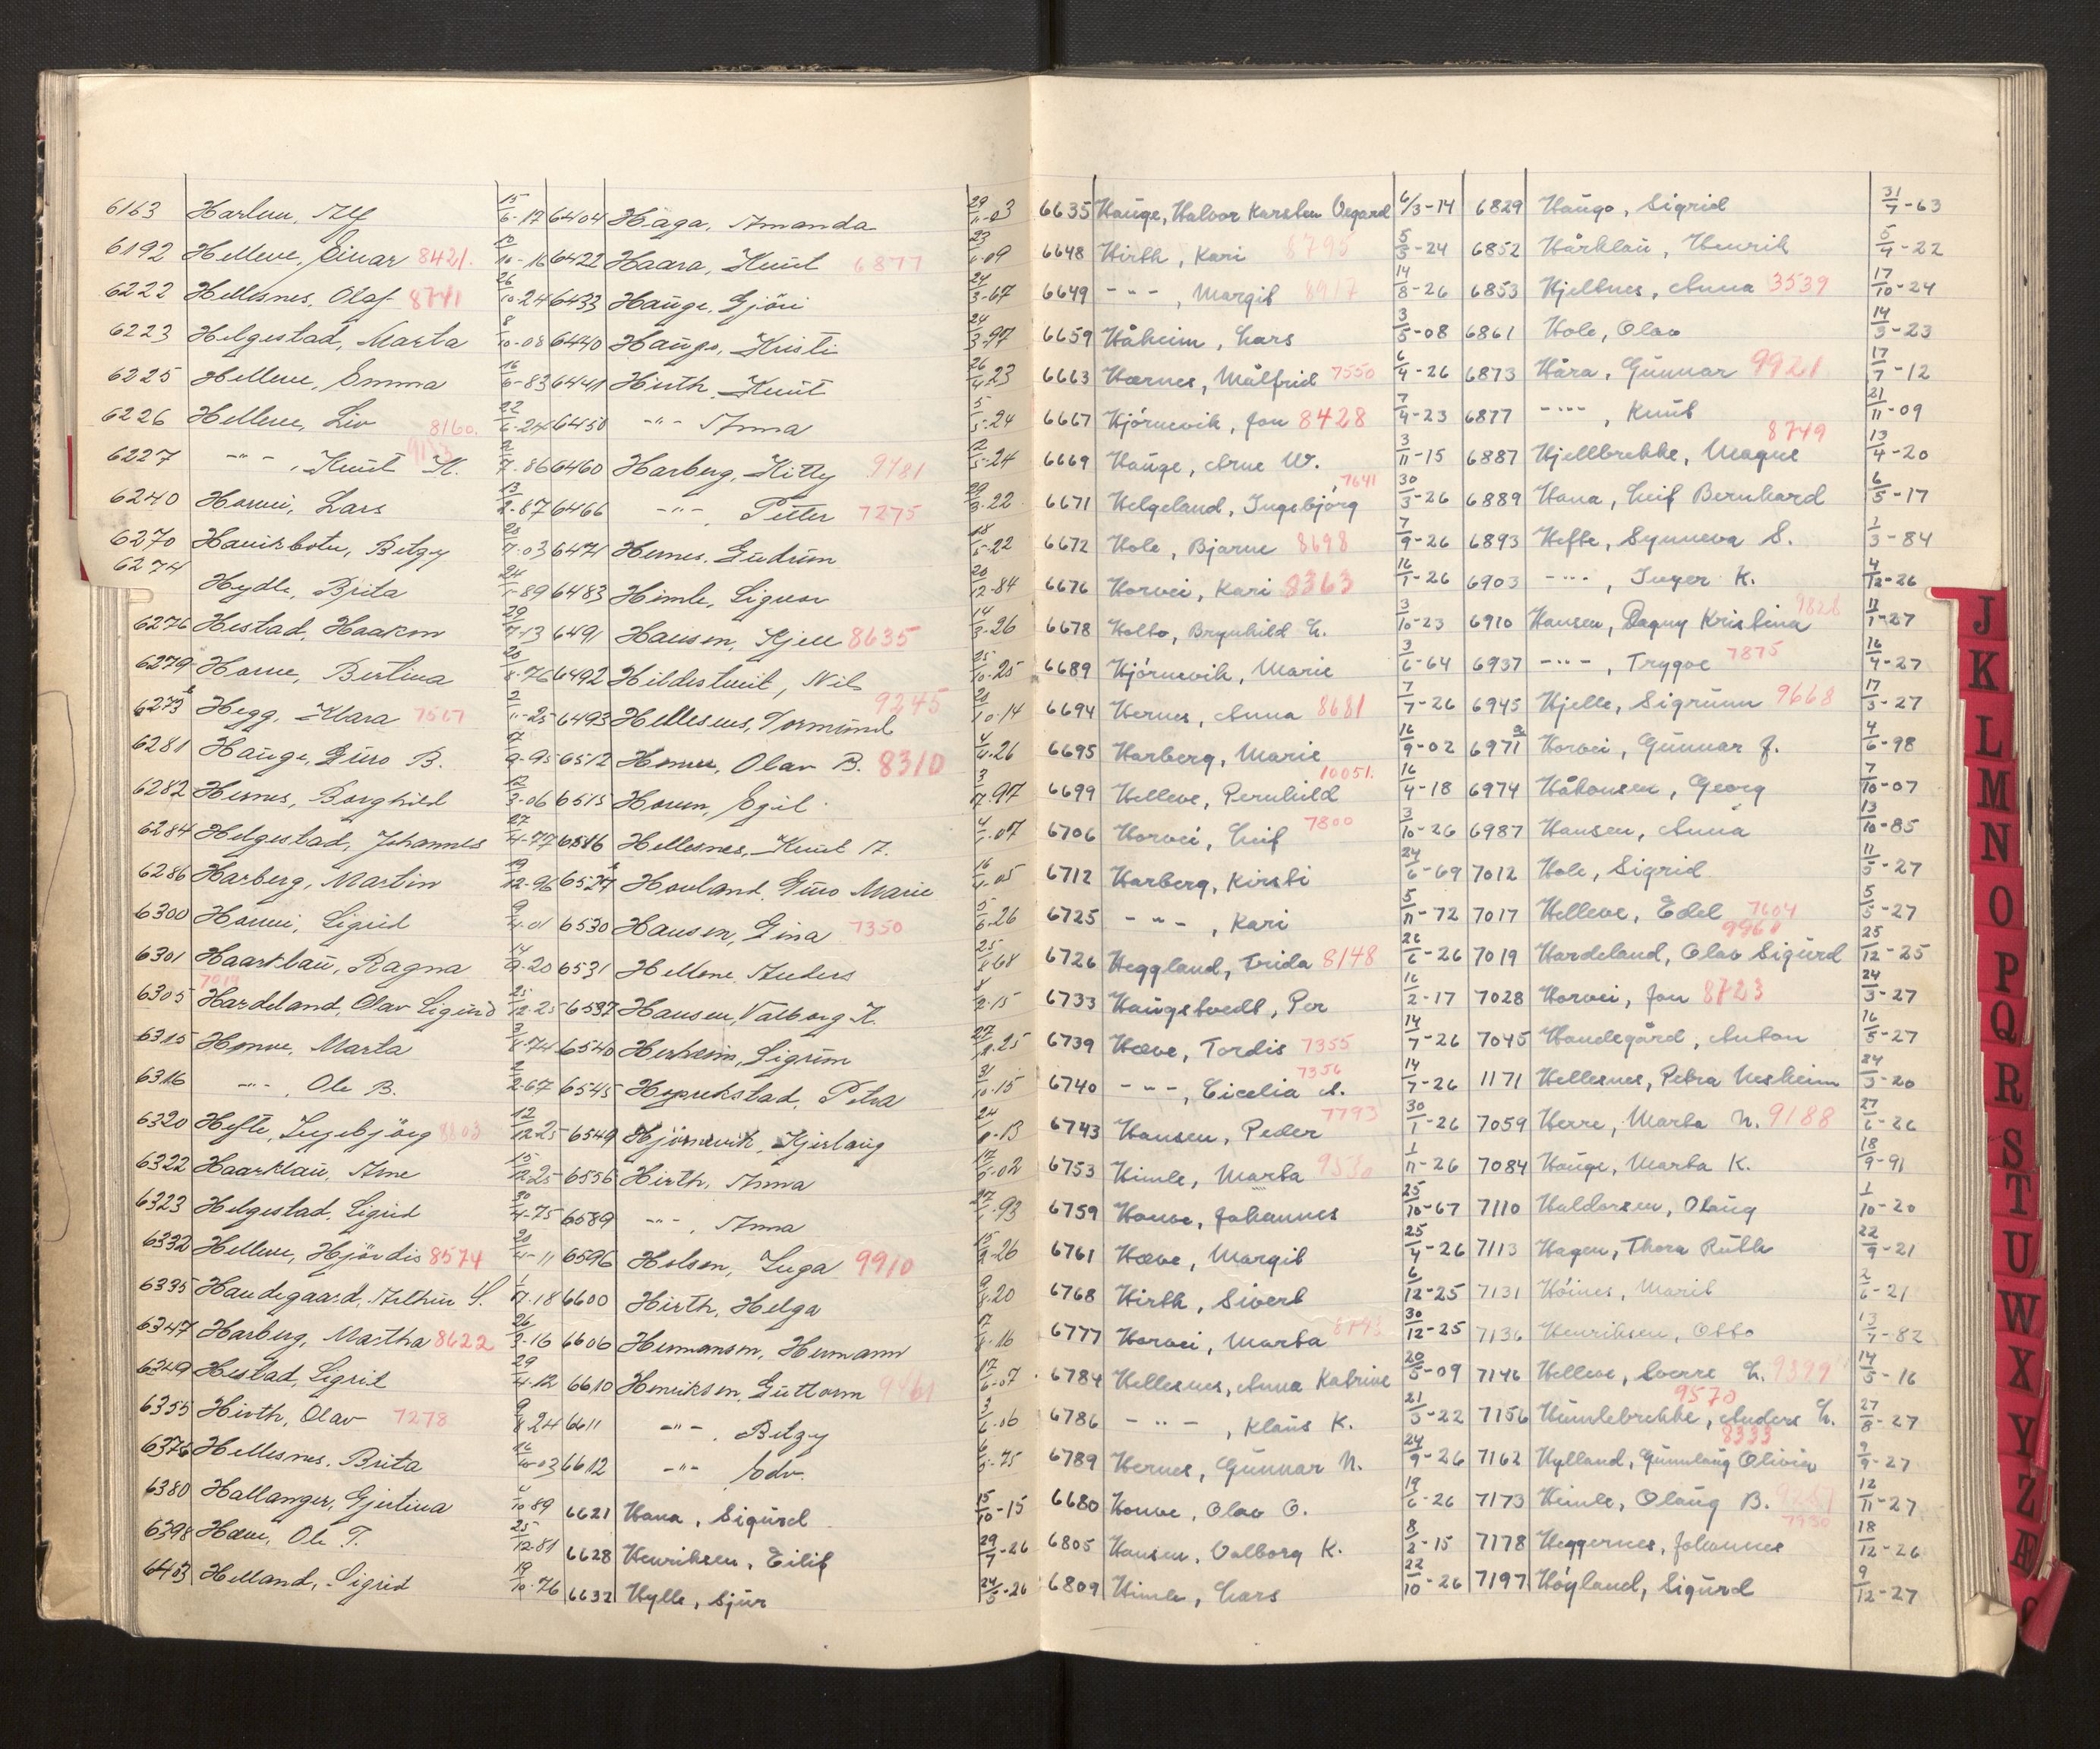 6163 Harlem, Alf 15/6-17
6192 Helleve, Einar 8421. 12/10-16
6222 Hellesnes, Olaf 8741 26/10-24
6223 Helgestad, Marta 8/10-08
6225 Helleve, Emma 16/6-83
6226 Helleve, Liv 8160. 22/6-24
6227 -"-, Knut K. 2/7-86
6240 Horvei, Lars 13/2-87
6270 Haukisbotn, Betzy 7-03
6274 Hydle, Brita 24/1-89
6276 Hestad, Haakon 29/7-13
6279 Horve, Bertina 20/8-76
6279b Hegg, Klara 7567 2/11-25
6281 Hauge, Guro B. 9-95
6282 Hernes, Borghild 12/3-06
6284 Helgestad, Johannes 27/4-77
6286 Harberg, Martin 19/12-96
6300 Horvei, Sigrid 9/4-01
6301 Haarklau, Ragna 14/9-20
6305 Hardeland, Olav Sigurd 7019 25/12-25
6315 Horve, Marta 3/8-74
6316 -"-, Ole B. 2/2-67
6320 Hefte, Ingebjörg 8803 12/12-25
6322 Haarklau, Arne 15/12-25
6323 Helgestad, Sigrid 30/4-75
6332 Helleve, Hjördis 8574 20/4-11
6335 Handegaard, Arthur S. 1/7-18
6347 Harberg, Martha 8622 26/3-16
6349 Hestad, Sigrid 29/4-12
6355 Hirth, Olav 7278 9/8-24
6376 Hellesnes, Brita 16/10-03
6380 Hallanger, Gjertina 4/10-89
6398 Hæve, Ole T. 25/12-81
6403 Helland, Sigrid 19/10-76
6404 Haga, Amanda 29/11-03
6422 Haara, Knut 6877 23/6-09
6433 Hauge, Gjöri 24/3-67
6440 Hauge, Kristi 24/3-97
6441 Hirth, Knut 26/4-23
6450 -"- Anna 5/5-24
6460 Harberg, Kitty 9481 12/5-24
6466 -"-, Petter 7275 29/3-22
6471 Hernes, Gudrun 18/5-22
6483 Himle, Sigvor 20/12-84
6491 Hansen, Kjell 8635 14/3-26
6492 Hildestveit, Nils 25/10-25
6493 Hellesnes, Tormund 9245 21/10-14
6512 Horve, Olav B. 8310 4/4-26
6515 Horven, Egil 3/12-97
6516 Hellesnes, Knut A. 4/1-07
Hovland, Guro Marie 16/4-05
6530 Hansen, Gina 7350 5/6-26
6531 Helleve, Anders 25/8-68
6537 Hansen, Valborg K. 8/2-15
6540 Herheim, Sigrun 27/12-25
6545 Petra 31/10-15
6549 Hjörnevik, Kjerlaug 24/6-13
6556 Hirth, Anna 17/5-02
6589 -"-, Anna 27/1-93
6596 Holsen, Inga 9910 15/2-26
6600 Hirth, Helga 9/8-20
6606 Hermansen, Hermann 17/8-16
6610 Henriksen, Guttorm 9461 17/6-07
6611 -"-, Betzy 3/6-06
6612 -"- Edv. 6/5-75
6621 Hana, Sigurd 15/10-15
6628 Henriksen, Eilif 29/7-26
6632 Hylle, Sjur 24/5-26
6635 Hauge, Halvor Karsten Vegard 6/3-14
6648 Hirth, Kari 8795 5/3-24
6649 -"-, Margit 8917 14/8-26
6659 Håheim, Lars 3/5-08
6663 Hærnes, Målfrid 7550 6/4-26
6667 Hjörnevik, Jon 8428 7/4-23
6669 Hauge, Arne W. 3/11-15
6671 Helgeland, Ingebjörg 7641 30/3-26
6672 Hole, Bjarne 8698 7/9-26
6676 Horvei, Kari 8363 16/1-26
6678 Holbo, Brynhild L. 3/10-23
6689 Hjörnevik, Marie 3/6-64
6694 Hernes, Anna 8681 7/7-26
6695 Harberg, Marie 16/9-02
6699 Helleve, Pernhild 10051. 16/4-18
6706 Horvei, Leif 7800 3/10-26
6712 Harberg, Kirsti 24/6-69
6725 -"-, Kari 5/11-72
6726 Heggland, Frida 8148 26/6-26
6733 Haugstvedt, Per 16/2-17
6739 Hæve, Tordis 7355 14/7-26
6740 -"-, Cicelia A. 7356 14/7-26
6743 Hansen, Peder 7793 30/1-26
6753 Himle, Marta 9530 1/11-26
6759 Honve, Johannes 25/10-67
6761 Hæve, Margit 25/4-26
6768 Hirth, Sivert 6/12-25
6777 Horvei, Marta 8143 30/12-25
6784 Hellesnes, Anna Katrine 20/5-09
6786 -"-, Klaus K. 21/3-22
6789 Hernes, Gunnar N. 24/9-26
6680 Honve, Olav O. 19/6-26
6805 Hansen, Valborg K. 8/2-15
6809 Himle, Lars 22/10-26
6829 Hauge, Sigrid 31/7-63
6852 Hårklau, Henrik 5/4-22
6853 Hjeltnes, Anna 3539 17/10-24
6861 Hole, Olav 14/3-23
6873 Håra, Gunnar 9921 17/7-12
6877 -"-, Knut 21/11-09
6887 Hjellbrekke, Magne 8749 13/4-20
6889 Hana, Leif Bernhard 6/5-17
6893 Hefte, Synneva S. 1/3-84
6903 -"-, Inger K. 4/12-26
6910 Hansen, Dagny Kristina 9828 12/1-27
6937 -"-, Trygve 7875 16/4-27
6945 Hjelle, Sigrunn 9668 17/3-27
6971a Horvei, Gunnar J. 4/6-98
6974 Håkonsen, Georg 7/10-07
6987 Hansen, Anna 13/10-85
7012 Hole, Sigrid 11/5-27
7017 Helleve, Edel 7604 5/5-27
7019 Hardeland, Olav Sigurd 9960 25/12-25
7028 Horvei, Jon 8723 24/3-27
7045 Handegård, Anton 16/5-27
1171 Hellesnes, Petra Nesheim 24/3-20
7059 Herre, Marta N. 9188 27/6-26
7084 Hauge, Marta K. 18/9-91
7110 Haldorsen, Olaug 1/10-20
7113 Hagen, Thora Ruth 22/9-21
7131 Höines, Marit 2/6-21
7136 Henriksen, Otto 13/7-82
7146 Helleve, Sverre L. 9399 14/5-16
7156 Humlebrekke, Anders L. 9570 27/8-27
7162 Hylland, Gunnlaug Olivia 8333 9/9-27
7173 Himle, Olaug B. 12/11-27
7178 Heggernes, Johannes 7930 18/12-26
7197 Höyland, Sigurd 9/12-27
J
K
L
M
N
O
P
Q
R
S
T
U
W
X
Y
Z
Æ